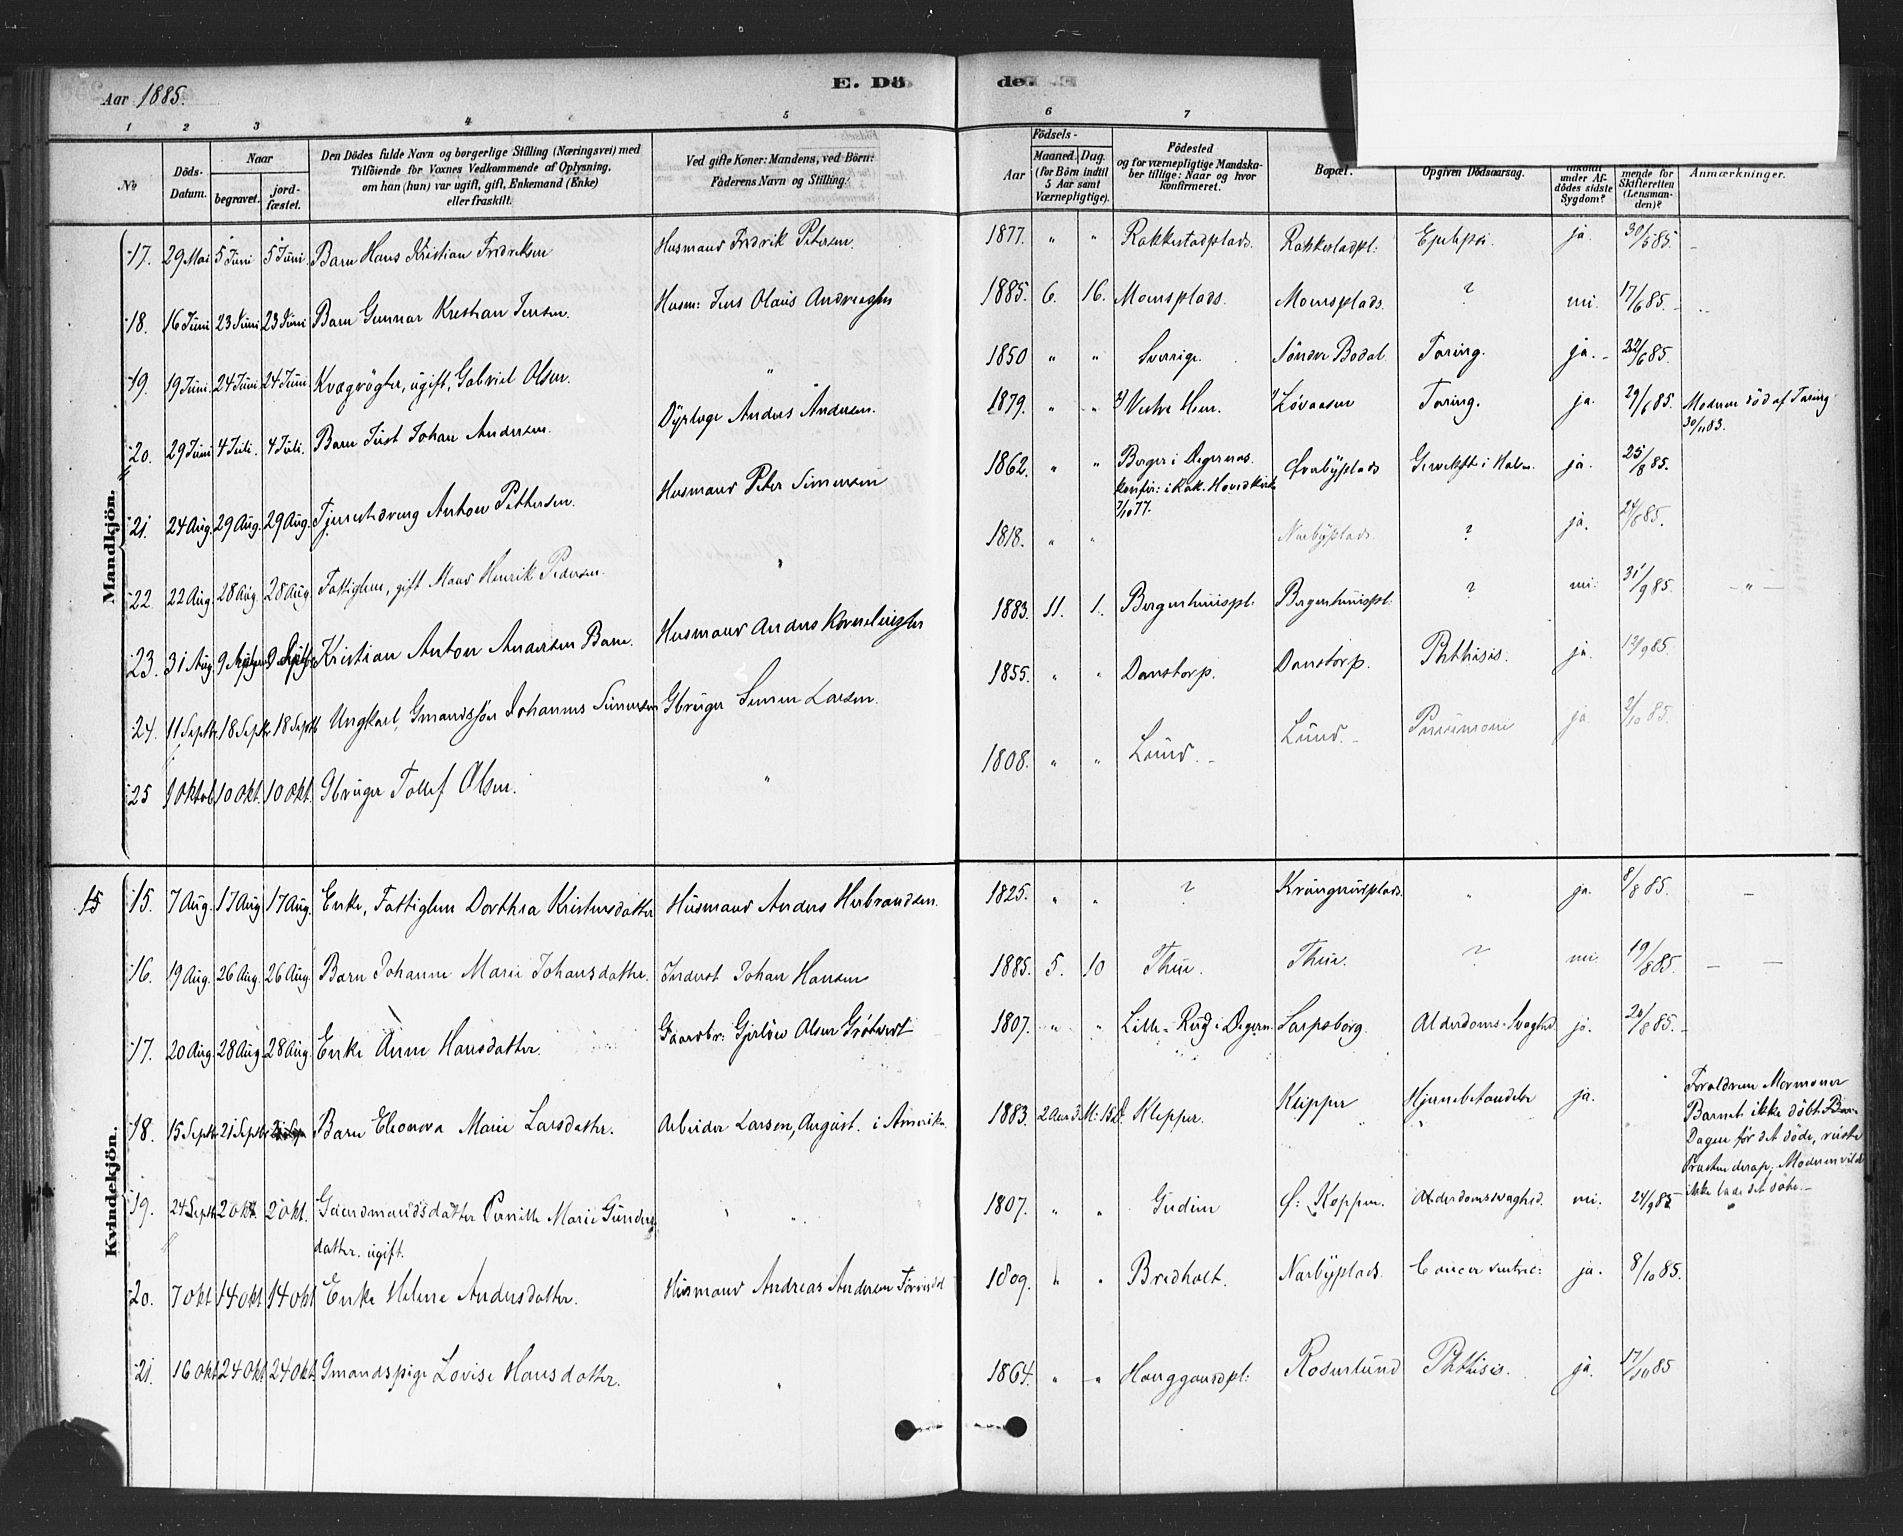 Aar 1885.
E. Dö de.
1 2 3 4 5 6 7
No
Döds-Datum.
Naar
begravet.
jord-fæstet.
Den Dödes fulde Navn og borgerlige Stilling (Næringsvei) med
Tilföiende for Voxnes Vedkommende af Oplysning,
om han (hun) var ugift, gift, Enkemand (Enke)
eller fraskilt.
Ved gifte Koner: Mandens, ved Börn:
Faderens Navn og Stilling.
Födsels-
Aar
Maaned. Dag.
(for Börn indtil
5 Aar samt
Værnepligtige).
Födested
og for værnepligtige Mandska-
ber tillige: Naar og hvor
konfirmeret.
Bopæl.
Opgiven Dödsaarsag.
under Af-
dödes sidste
Sygdom?
mende for
Skifteretten
(Lensman-
den)?
Anmærkninger.
Mandkjön.
17. 29 Mai 5 Juni 5 Juni Barn Hans Kristian Fredriksen Husmand Fredrik Petersen 1877. " " Rakkestadplads. Rakkestadpl: ja. 30/5 85. -
18. 16 Juni 23 Juni 23 Juni Barn Gunnar Kristian Jensen. Husm: Jens Olaus 1885. 6. 16. Momsplads. Momsplads. ? nei. 17/6 85.
19. 19 Juni 24 Juni 24 Juni Kvægrögter, ugift, Gabriel Olsen. " 1850 " " Sverrige. Søndre Bodal. Tæring. ja. 22/6 85.
20. 29 Juni 4 Juli. 4 Juli. Barn Just Johan Andersen. Anders Andersen. 1879. " " Vestre Hem. Løvaasen Tæring. ja. 29/6 85. Moderen död af Tæring 30/11 83.
21. 24 Aug. 29 Aug. 29 Aug. Tjenestedreng Anton Pettersen. Husmand Peter Simensen 1862. " " Berger i Degernes. konfir: i Rak. Hovedkirke 7/10 77. Østbyplads i Halsen. ja. 25/8 85.
22. 22 Aug. 28 Aug. 28 Aug. Fattiglem, gift Mand Henrik Pedersen. " 1818. " " Narbyplads. ? ja. 24/8 85.
23. 31 Aug. 9 Septbr 9 Septbr Kristian Anton Andersen Barn. Husmand Anders 1883. 11. 1. Bergerhuuspl: Bergerhuuspl: ? nei. 31/9 85. - " -
24. 11 Septbr. 18 Septbr 18 Septbr Ungkarl, Gmandssøn Johannes Simensen Gbruger Simen Larsen. 1855. " " Danstorp. Danstorp. Phthisis. ja. 13/9 85.
25 1 Oktob. 10 Okt. 10 Okt. Gbruger Tollef Olsen. " 1808. " " Lund. - Lund. - Pneumoni ja 2/10 85.
Kvindekjön.
15 15. 7 Aug. 17 Aug. 17 Aug. Enke, Fattiglem Dorthea Kristensdatter Husmand Anders Herbrandsen. 1825. " " ? " ja. 8/8 85. -
16. 19 Aug. 26 Aug. 26 Aug. Barn Johanne Marie Johansdatter. Inderst Johan Hansen 1885. 5. 10 Thue. Thue. ? nei. 19/8 85. - -
17. 20 Aug. 28 Aug. 28 Aug. Enke Anne Hansdatter. Gaardbr: Gjerløw Olsen Grøtvedt 1807. " " Lille-Rud i Degern. Sarpsborg. Alderdoms-Svaghed. ja. 20/8 85.
18. 15 Septbr 21 Septbr Barn Eleonora Marie Larsdatter. Arbeider Larsen, August. i Amerika. 1883. 2 Aar 3 M: 15 D. Klepper. Klepper Hjernebetændelse ja. Forældrene Mormoner
Barnet ikke döbt.
Dagen før det döde,
Præsten derop, Moderen vilde
ikke lade det döbe.-
19. 24 Septbr 2 Okt. 2 Okt. Gaardmandsdatter Pernille Marie Gunders-
datter. ugift. " 1807. " " Gudim Ø: Koppen. Alderdomssvaghed. nei. 24/9 85
20. 7 Okt 14 Okt 14 Okt Enke Helene Andersdatter. Husmand Andreas Andersen 1809. " " Bredholt. Narbyplads. Cancer ventric: ja. 8/10 85.
21. 16 Okt 24 Okt 24 Okt Gmandspige Lovise Hansdatter. " 1864. " " Hauggaardpl: Rosenlund Phthisis. ja. 17/10 85